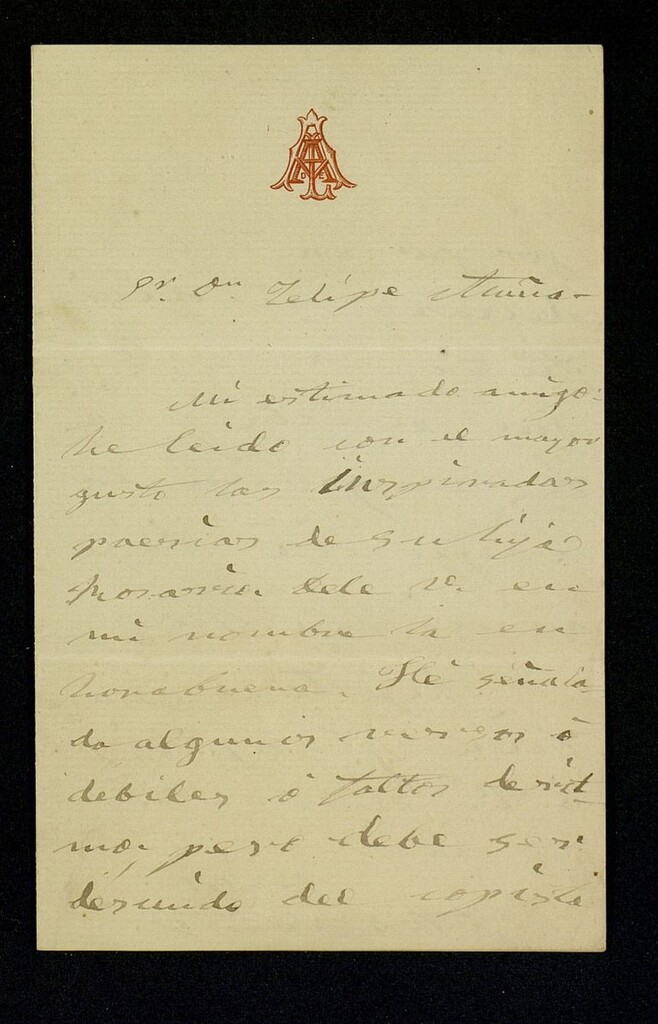 Sr. Dn. Felipe Acuña-
Mi estimado amigo:
he leido con el mayor
gusto las inspiradas
poesias de su hija
Rosario. Dele V. en
mi nombre la en
horabuena. Hé señala-
do algunos versos ó
debiles ó faltos de rit-
mo, pero debe ser
descuido del copista